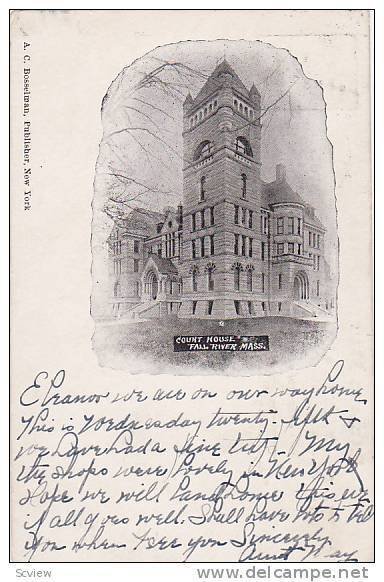 A. C. Bosselman, Publisher, New York
COURT HOUSE
FALL RIVER MASS.
Eleanor we are on our way home
This is Wednesday twenty-fifth &
we have had a fine trip. My
the shops were lovely in New York
Hope we will land home this eve
if all goes well. Shall have lots to tell
you when I see you Sincerely
Aunt May
Scview
http://www.delcampe.net